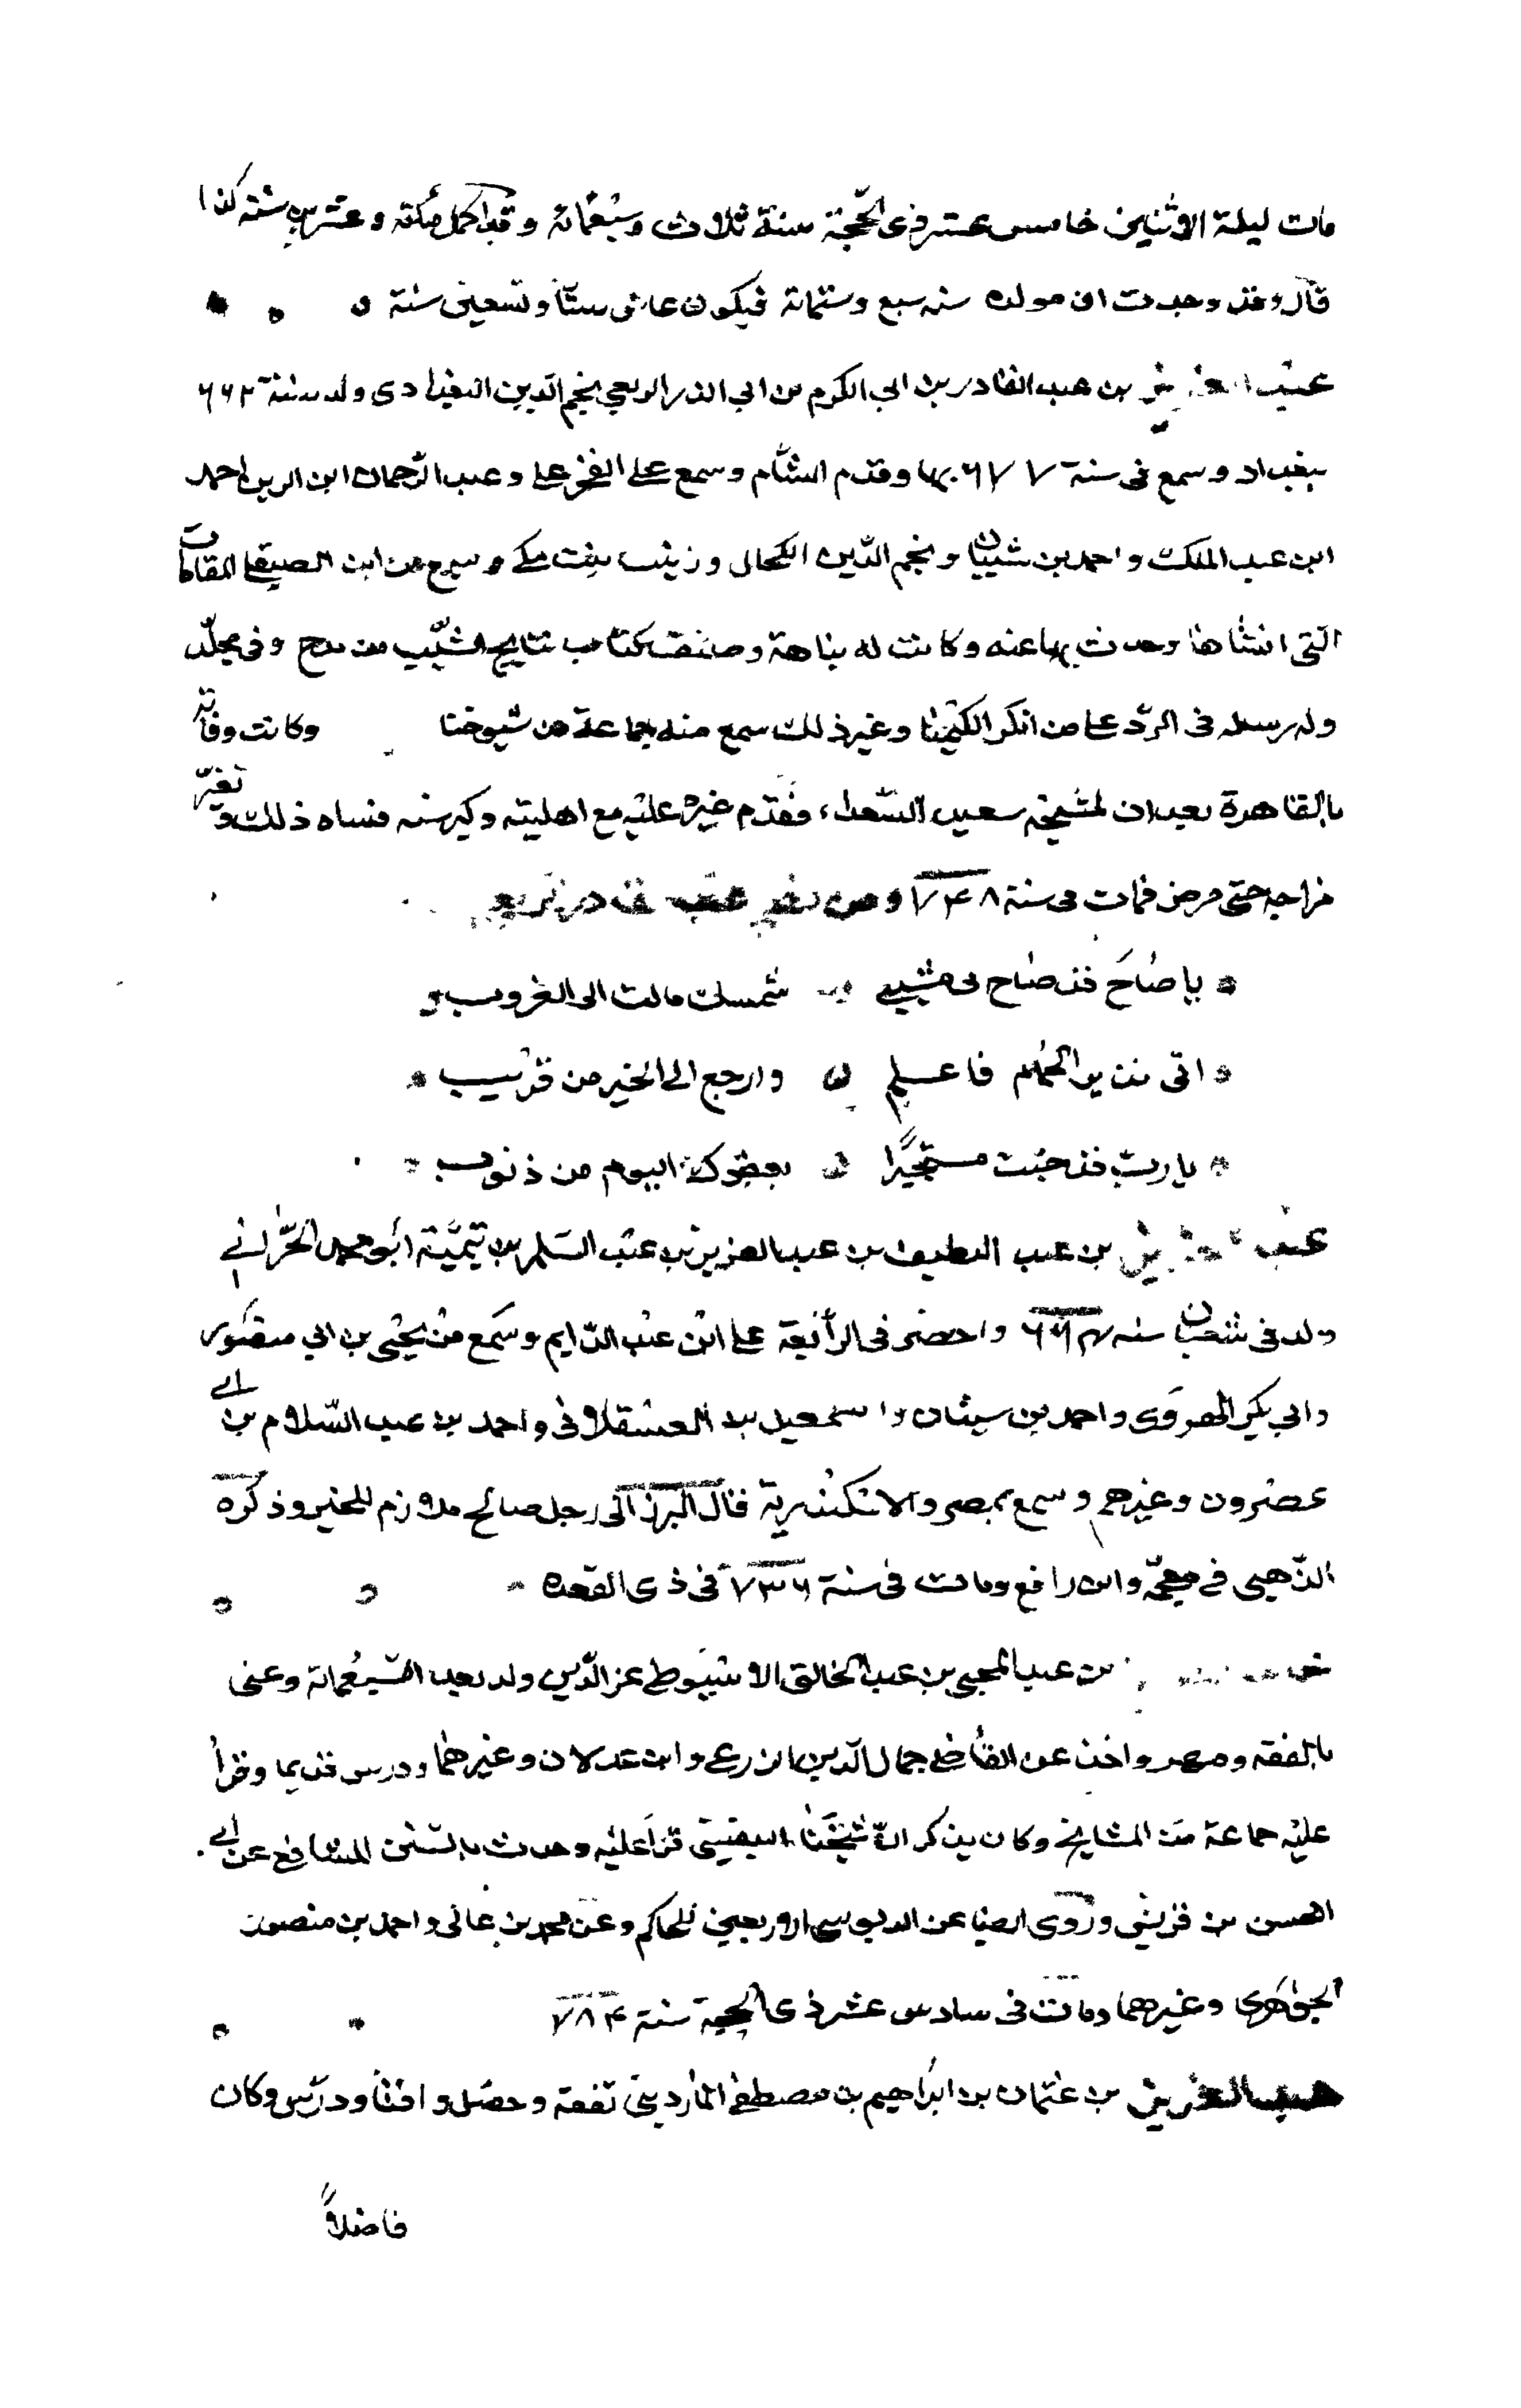 مات ليلة الاثنين خامس عشر ذى الحجة سنة ثلاث وسبعمائة وقد اكمل مئة وعشرين سنة كذا
قال وقد وجدت ان مولده سنه سبع وستمائة فيكون عاش ستا وتسعين سنة
عبد العزيز بن عبد القادر بن ابى الكرم بن ابى الذر الربعي نجم الدين البغدادى ولد سنة ٦٦٢
ببغداد وسمع فى سنة ٦٧٧ بها وقدم الشام وسمع على الفخر على وعبد الرحمان ابن الزين احمد
ابن عبد الملك واحمد بن شيبان ونجم الدين الكحال وزينب بنت مكي وسمع من ابن الصيقل المقامات
التى انشاها وحدث بها عنه وكانت له نباهة وصنف كتاب نتايج الشيب من مدح وفى مجلد
وله رسالة فى الرد على من انكر الكيميا وغير ذلك سمع منه جماعة من شيوخنا وكانت وفاته
بالقاهرة بعد ان لمشيخة سعيد السعداء فقدم غيره عليه مع اهليته وكبر سنه فساه ذلك وتغير
مزاجه حتى مرض فمات فى سنة ٧٤٨ ومن
يا صاح قد صاح بى مشيبى شمسك مالت الى الغروب
انى نذير الحمام فاعلم وارجع الى الخير من قريب
يا رب قد جئت مستجيرا بعفوك اليوم من ذنوب
عبد العزيز بن عبد اللطيف بن عبد العزيز بن عبد السلم بن تيمية ابو محمد الحراني
ولد فى شعبان سنه ٦٦٤ واحضر فى الرابعة على ابن عبد الدايم وسمع من يحيى بن ابي منصور
وابي بكر الهروى واحمد بن شيبان واسمعيل بن العسقلانى واحمد بن عبد السلام بن ابي
عصرون وغيرهم وسمع بمصر والاسكندرية قال البرزالى رجل صالح ملازم للخير وذكره
الذهبى في معجمه وابن رافع ومات فى سنة ٧٣٦ فى ذى القعده
بن عبد المحيى بن عبد الخالق الاسيوطى عز الدين ولد بعد السبعمائة وعنى
بالفقه ومهر واخذ عن القاضى جمال الدين الزرعي وابن عدلان وغيرهما ودرس قديما وقرأ
عليه جماعة من المشايخ وكان يذكر ان شيخنا البلقينى قرأ عليه وحدث بالسنن للشافعى عن ابي
الحسن بن قريش وروى ايضا عن الدبوسى الاربعين للحاكم وعن محمد بن غالى واحمد بن منصور
الجوهرى وغيرهما ومات فى سادس عشر ذى الحجة سنة ٧٨٤
عبد العزيز بن عثمان بن ابراهيم بن مصطفى الماردينى تفقه وحصل وافتا ودرس وكان
فاضلاً